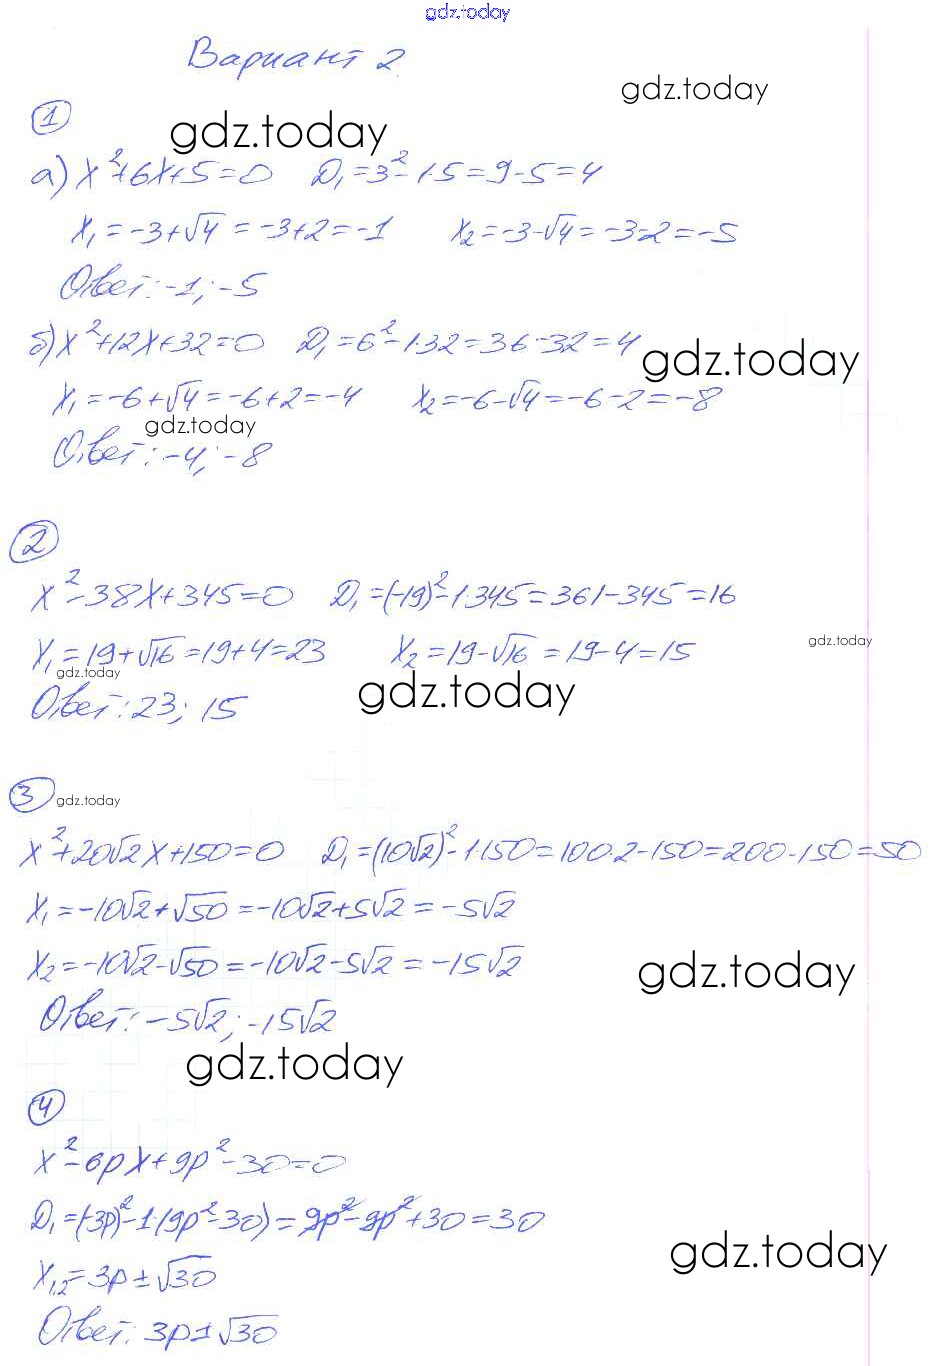 gdz.today
Вариант 2
gdz.today
① gdz.today
а) x²+6x+5=0 D₁=3²-1·5=9-5=4
x₁=-3+√4=-3+2=-1 x₂=-3-√4=-3-2=-5
Ответ: -1; -5
б) x²+12x+32=0 D₁=6²-1·32=36-32=4
gdz.today
x₁=-6+√4=-6+2=-4 x₂=-6-√4=-6-2=-8
gdz.today
Ответ: -4; -8
②
x²-38x+345=0 D₁=(-19)²-1·345=361-345=16
x₁=19+√16=19+4=23 x₂=19-√16=19-4=15
gdz.today
gdz.today
gdz.today
Ответ: 23; 15
③ gdz.today
x²+20√2x+150=0 D₁=(10√2)²-1·150=100·2-150=200-150=50
x₁=-10√2+√50=-10√2+5√2=-5√2
x₂=-10√2-√50=-10√2-5√2=-15√2
gdz.today
Ответ: -5√2; -15√2
gdz.today
④
x²-6px+9p²-30=0
D₁=(-3p)²-1·(9p²-30)=9p²-9p²+30=30
gdz.today
x₁,₂=3p±√30
Ответ: 3p±√30